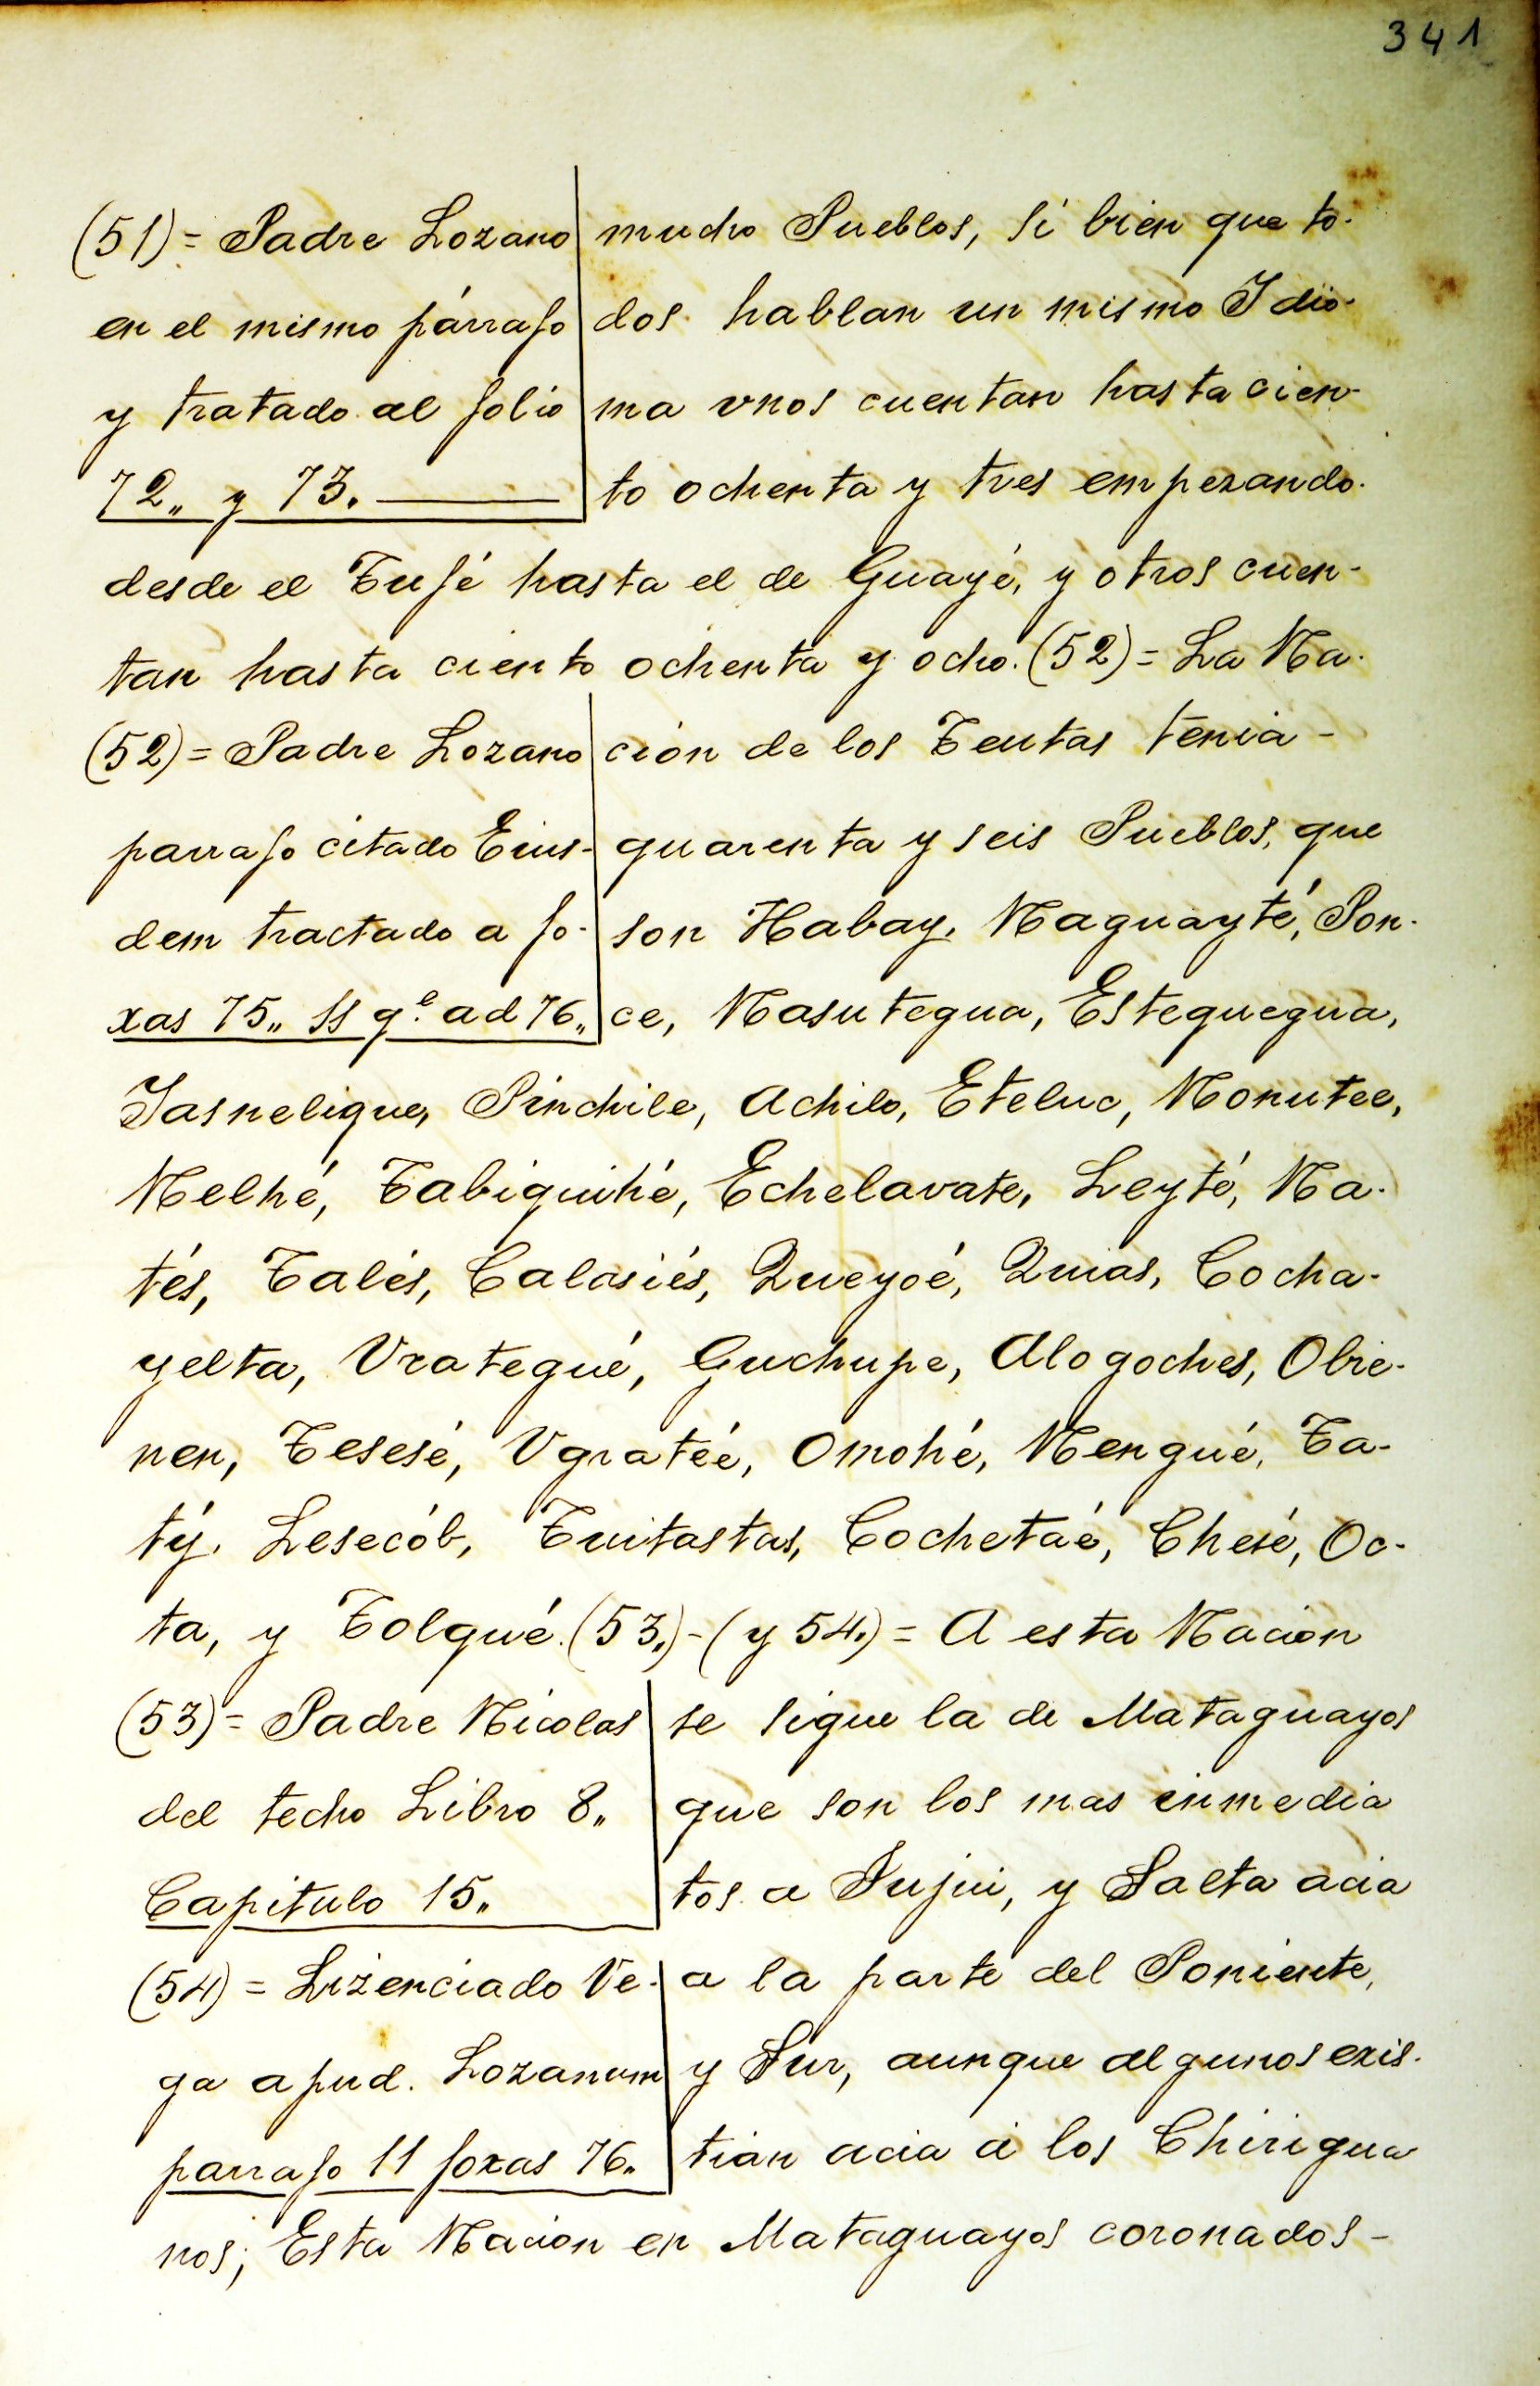 341
(51) = Padre Lozano
en el mismo párrafo
y tratado al folio
72,, y 73.
mucho Pueblos, si bien que to-
dos hablan un mismo Idio-
ma vnos cuentan hasta cien-
to ochenta y tres empezando
desde el Tufé hasta el de Guayé, y otros cuen-
tan hasta ciento ochenta y ocho. (52) = La Na-
(52) = Padre Lozano
parrafo citado Eius-
dem tractado a fo-
xas 75,, ss qe. ad 76,,
cion de los Teutas tenia -
quarenta y seis Pueblos, que
son Habay, Naguayté, Pon-
ce, Nasutegua, Esteguegua,
Jasnelique, Pinchile, Achilo, Eteluc, Nonutee,
Nelhé, Tabiquihé, Echelavate, Leyté, Na-
tés, Talés, Calasiés, Queyoé, Quias, Cocha-
yelta, Vxategué, Guchupe, Alogoches, Obie-
nen, Tesesé, Vgratée, Omohé, Nengué, Ta-
tý, Lesecób, Tuitastas, Cochetaé, Chesé, Oc-
ta, y Tolgué. (53.) - (y 54.) = A esta Nacion
(53) = Padre Nicolas
del techo Libro 8,,
Capitulo 15,,
se sigue la de Mataguayos
que son los mas inmedia
tos a Jujui, y Salta acia
(54) = Lizenciado Ve-
ga apud. Lozanum
parrafo 11 foxas 76,,
a la parte del Poniente,
y Sur, aunque algunos exis-
tian acia á los Chirigua
nos; Esta Nacion en Mataguayos coronados -